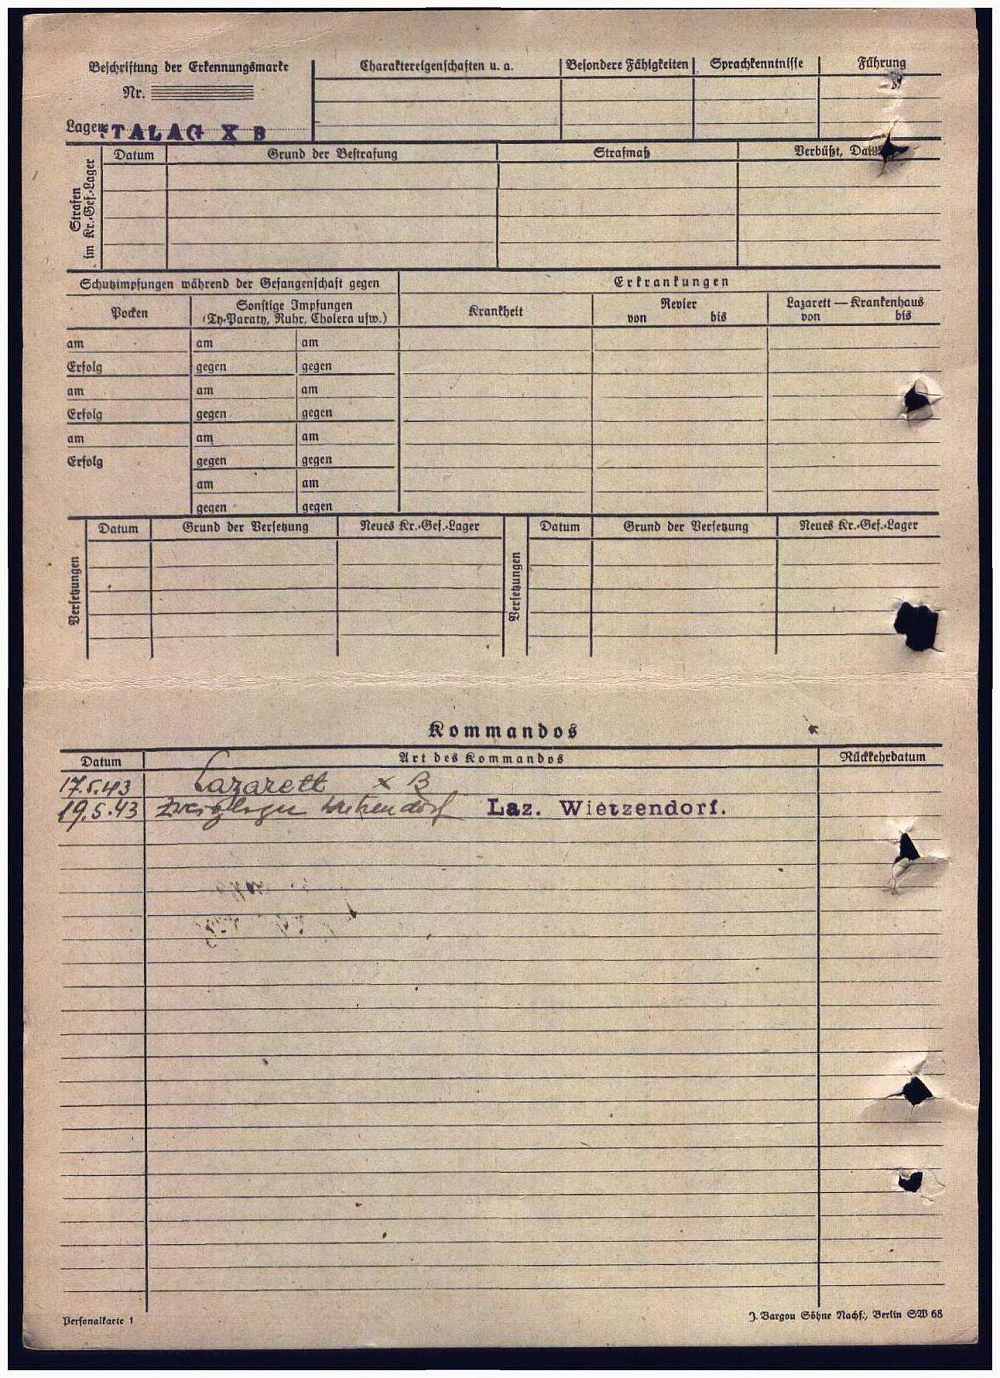 Beschriftung der Erkennungsmarke
Nr.
Lager: STALAG X B
Charaktereigenschaften u. a.
Besondere Fähigkeiten
Sprachkenntnisse
Führung
Strafen
im Kr.-Gef.-Lager
Datum
Grund der Bestrafung
Strafmaß
Verbüßt,
Schutzimpfungen während der Gefangenschaft gegen
Pocken
Sonstige Impfungen
(Ty-Paraty, Ruhr, Cholera usw.)
am am am
Erfolg gegen gegen
am am am
Erfolg gegen gegen
am am am
Erfolg gegen gegen
am am
gegen gegen
Erkrankungen
Krankheit
Revier
von bis
Lazarett — Krankenhaus
von bis
Versetzungen
Datum
Grund der Versetzung
Neues Kr.-Gef.-Lager
Versetzungen
Datum
Grund der Versetzung
Neues Kr.-Gef.-Lager
Kommandos
Datum Art des Kommandos Rückkehrdatum
17.5.43 Lazarett X B
19.5.43 Zweiglager Wietzendorf Laz. Wietzendorf.
Personalkarte 1
J. Bargou Söhne Nachf., Berlin SW 68